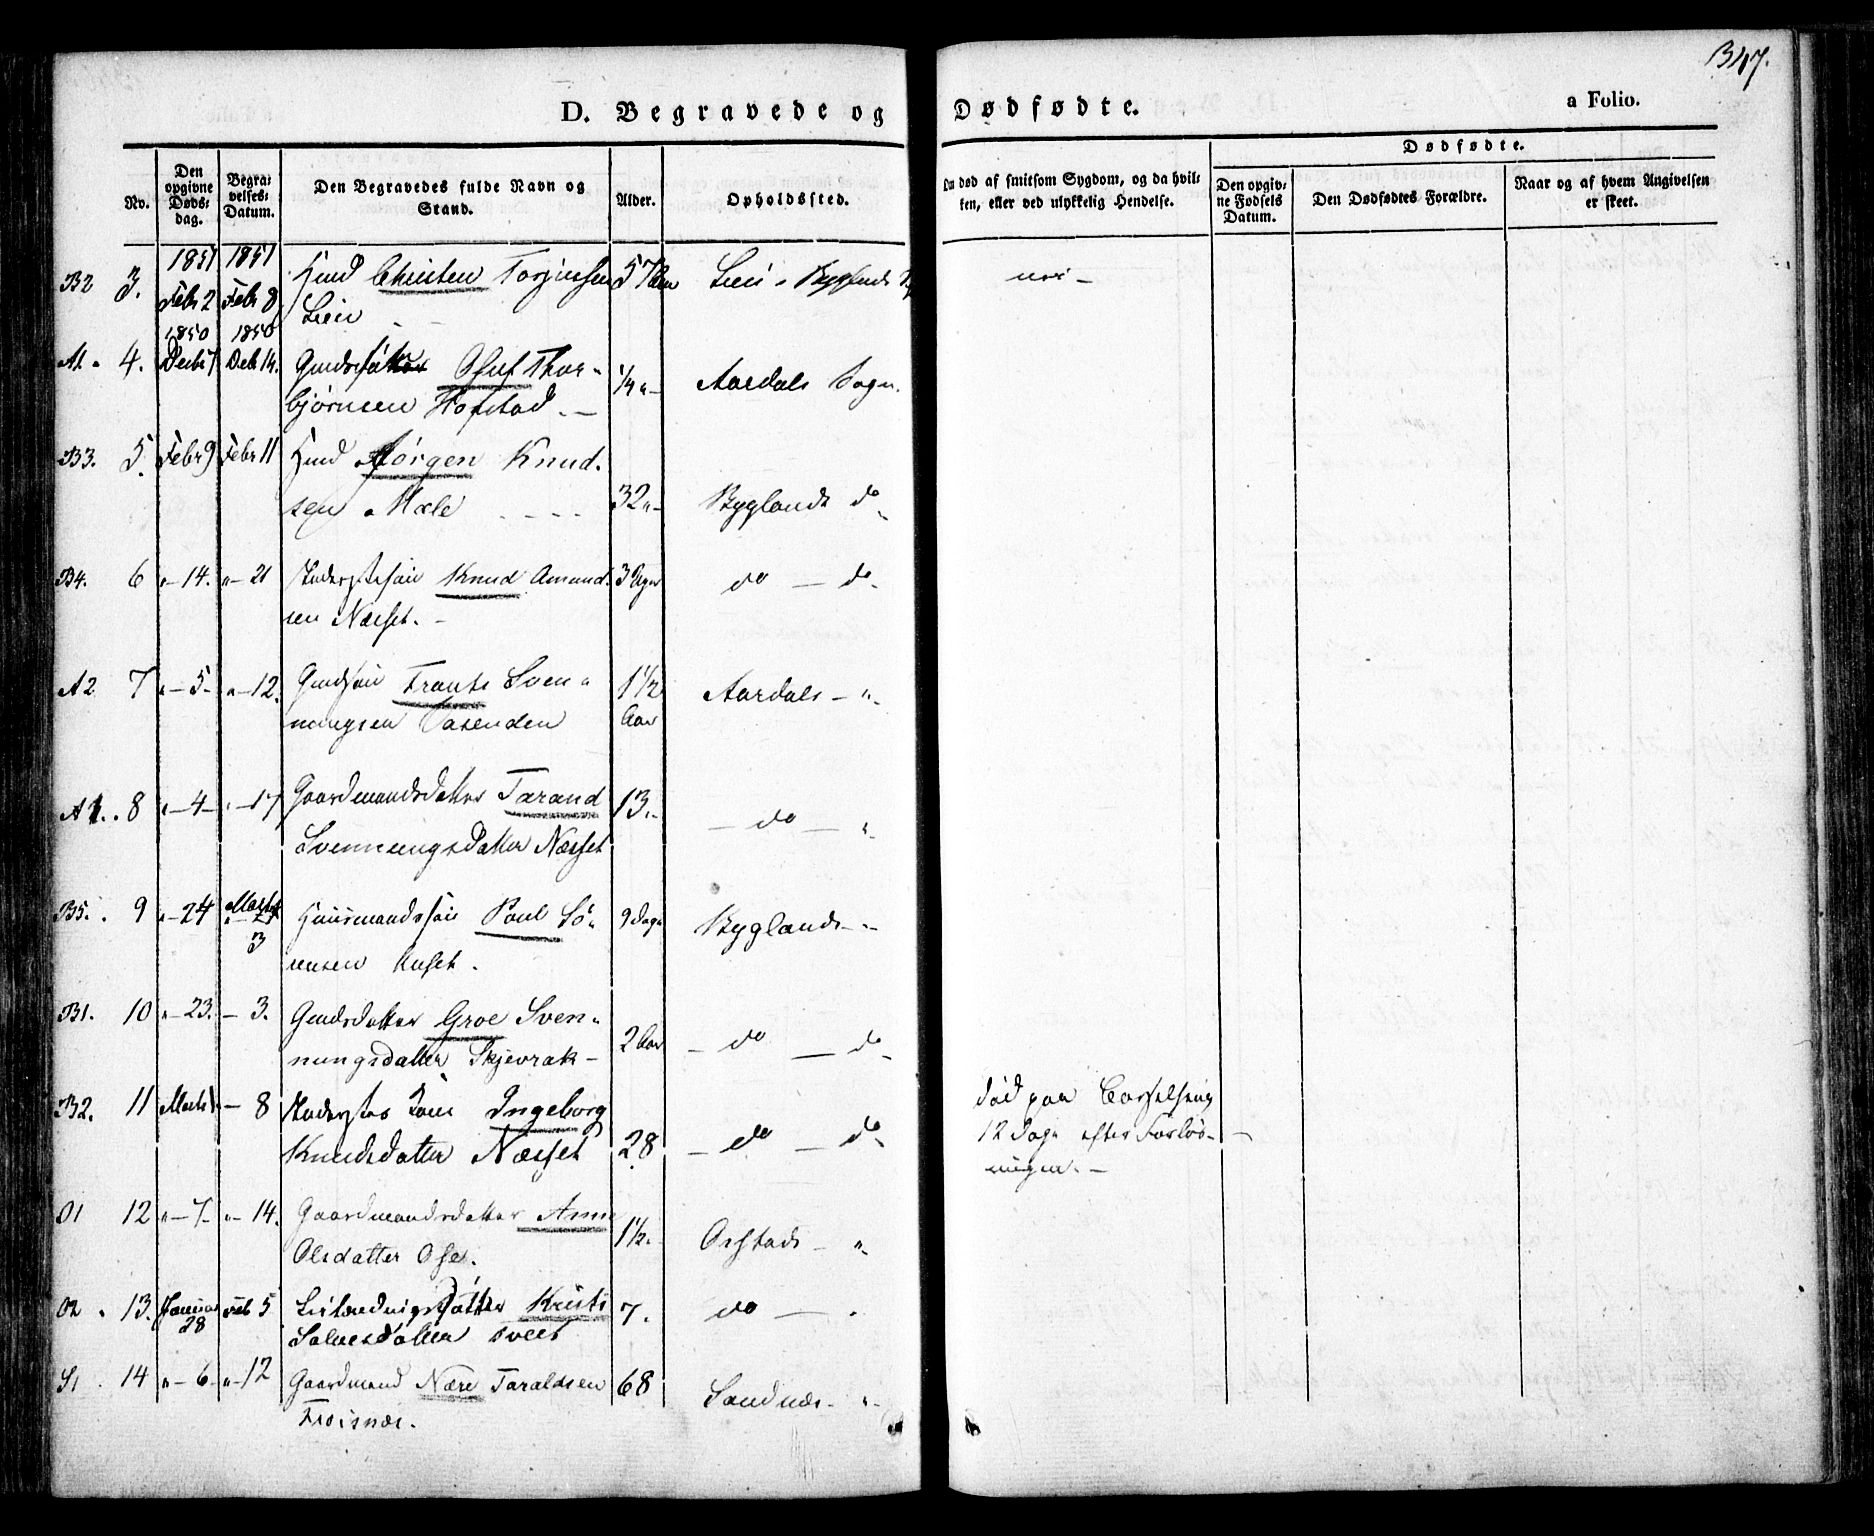 347.
D. Begravede og Dødfødte.
a Folio.
No.
Den opgivne Døds-dag.
Begra-velses-Datum.
Den Begravedes fulde Navn og Stand.
Alder.
Opholdssted.
Om død af smitsom Sygdom, og da hvil-ken, eller ved ulykkelig Hendelse.
Dødfødte.
Den opgiv-ne Fødsels Datum.
Den Dødfødtes Forældre.
Naar og af hvem Angivelsen er skeet.
1851 1851
B2 3. Febr 2 Febr 8 Christen Torjussen 57 Byglands
1850 1850
A1. 4. Decbr 7 Decbr 14. Oluf Thor-
bjørnsen Hofstad. 1/4 Aardals Sogn.
B3. 5. Febr 9 Febr 11 Jørgen Knud-
sen Mæle 32 Byglands do
B4. 6 " - 14. " - 21 Knud Amund-
sen Næsset. - 3 Uger do - do
A2 7 " - 5 - " - 12. Frants Sven-
ningsen Vasenden 1 1/2 Aar Aardals - "
8 " - 4 - " - 17 Gaardmandsdatter Tarand
Svenningsdatter Næsset 13. - do - "
B5. 9 " - 24 Marts 3 Huusmandssøn Paul Sø-
rensen 9 Dage Byglands - "
B1. 10 " - 23. - 3. Groe Sven-
nungsdatter Skjevrak - 2 Aar - do - do
B2. 11 Marts 1. - 8 Ingeborg
Knudsdatter Næsset 28 - do - do
død paa Barselseng
12 Dage efter Forløs-
ningen. -
O1 12 " - 7 - " - 14. Gaardmandsdatter Anne
Olsdatter Ose. 1 1/2. Orstads - "
O2. 13. Januar 28 Feb 5 datter Kristi
7. do -
S1 14 " - 6 - " - 12 Gaardmand Nære Taraldsen
Froisnæs. 68 Sandnæs - "